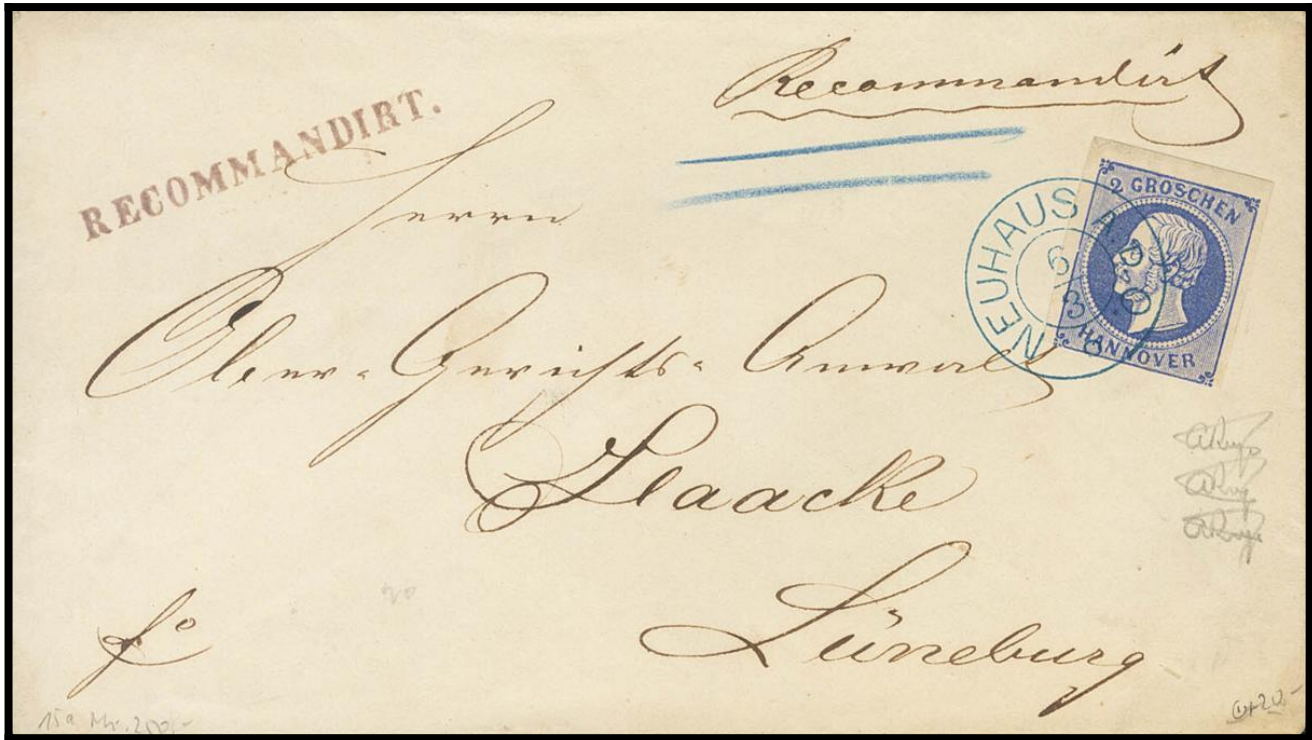 Recommandirt
RECOMMANDIRT.
Herrn
2 GROSCHEN
HANNOVER
NEUHAUS A.D.
6
3
Ober-Gerichts-Anwalt
Haacke
Lüneburg
fo
20
15a